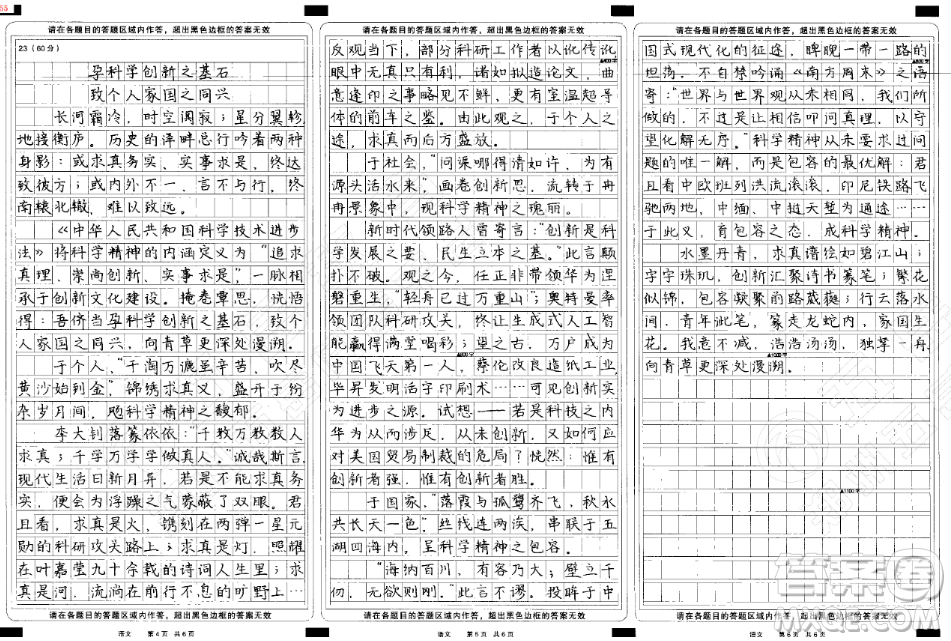 请在各题目的答题区域内作答，超出黑色边框的答案无效
23（60分）
孕科学创新之基石
致个人家国之同兴
长河霜冷，时空阔寂；星分翼轸，
地接衡庐。历史的泮畔总行吟着两种
身影：或求真务实、实事求是，终达
致彼方；或内外不一、言不与行，终
南辕北辙，难以致远。
《中华人民共和国科学技术进步
法》将科学精神的内涵定义为“追求
真理，崇尚创新，实事求是”一脉相
承于创新文化建设。掩卷覃思，恍悟
得：吾侪当孕科学创新之基石，致个
人家国之同兴，向青草更深处漫溯。
于个人，“千淘万漉虽辛苦，吹尽
黄沙始到金”锦绣求真义，盛开于纷
岁月间，飏科学精神之馥郁。
李大钊落篆依依：“千教万教教人
求真；千学万学学做真人。”诚哉斯言，
现代生活日新月异，若是不能求真务
实，便会为浮躁之气蒙蔽了双眼。君
且看，求真是火，镌刻在两弹一星元
勋的科研攻关路上；求真是灯，照耀
在叶嘉莹九十余载的诗词人生里；求
真是河，流淌在前行不息的旷野……
请在各题目的答题区域内作答，超出黑色边框的答案无效
语文 第4页 共6页
请在各题目的答题区域内作答，超出黑色边框的答案无效
反观当下，部分科研工作者以讹传讹，
眼中无真只有利，诸如拟造论文，曲
意逢印之事略见不鲜，更有室温超导
体的前车之鉴。由此观之，于个人之
途，求真而后方盛放。
于社会，“问渠哪得清如许，为有
源头活水来”画卷创新思，流转于冉
冉景象中，现科学精神之瑰丽。
新时代领路人曾寄言：“创新是科
学发展之要、民生立本之基。”此言颠
扑不破。观之今，任正非带领华为涅
磐重生，“轻舟已过万重山；奥特曼率
领团队科研攻关，终让生成式人工智
能赢得满堂喝彩；望之古，万户成为
中国飞天第一人，蔡伦改良造纸工业，
毕昇发明活字印刷术……可见创新实
为进步之源。试想——若是科技之内
华为从而涉足，从未创新，又如何应
对美国贸易制裁的危局？恍然：惟有
创新者强，惟有创新者胜。
于国家，“落霞与孤鹜齐飞，秋水
共长天一色”丝线连两涘，串联于五
湖四海内，呈科学精神之包容。
“海纳百川，有容乃大；壁立千
仞，无欲则刚。”此言不谬。投眸于中
请在各题目的答题区域内作答，超出黑色边框的答案无效
语文 第5页 共6页
请在各题目的答题区域内作答，超出黑色边框的答案无效
国式现代化的征途，睥睨一带一路的
坦荡。不自禁吟诵《南方周末》之语
寄：“世界与世界观从未相同，我们所
做的，不过是让相信叩问真理，以守
望化解无序。”科学精神从未要求过问
题的唯一解，而是包容的最优解：君
且看中欧班列洪流滚滚，印尼铁路飞
驰两地，中缅、中链天堑为通途……
于此义，育包容之态，成科学精神。
水墨丹青，求真谱绘如碧江山；
字字珠玑，创新汇聚诗书篆笔；繁花
似锦，包容凝聚雨路葳蕤；行云落水
间，青年泚笔，篆走龙蛇内，家国生
花。我意不减，浩浩汤汤，独擎一舟，
向青草更深处漫溯。
请在各题目的答题区域内作答，超出黑色边框的答案无效
语文 第6页 共6页
答案圈